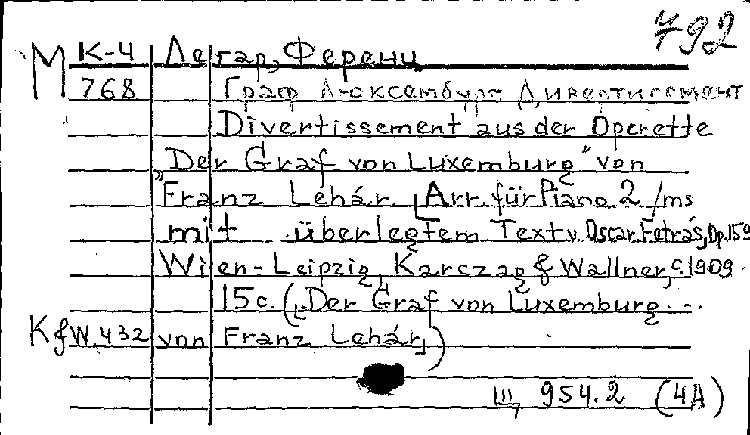 792
М К-4 Легар, Ференц
768 Граф Люксембург Дивертиссмент
Divertissement aus der Operette
„Der Graf von Luxemburg“ von
Franz Lehár. [Arr. für Piano 2/ms
mit überlegtem Text v. Oscar Fetrás, Op.159
Wien-Leipzig, Karczag & Wallner, c.1909.
15c. („Der Graf von Luxemburg...
K&W.432 von Franz Lehár“)
Ш, 954.2 (4А)